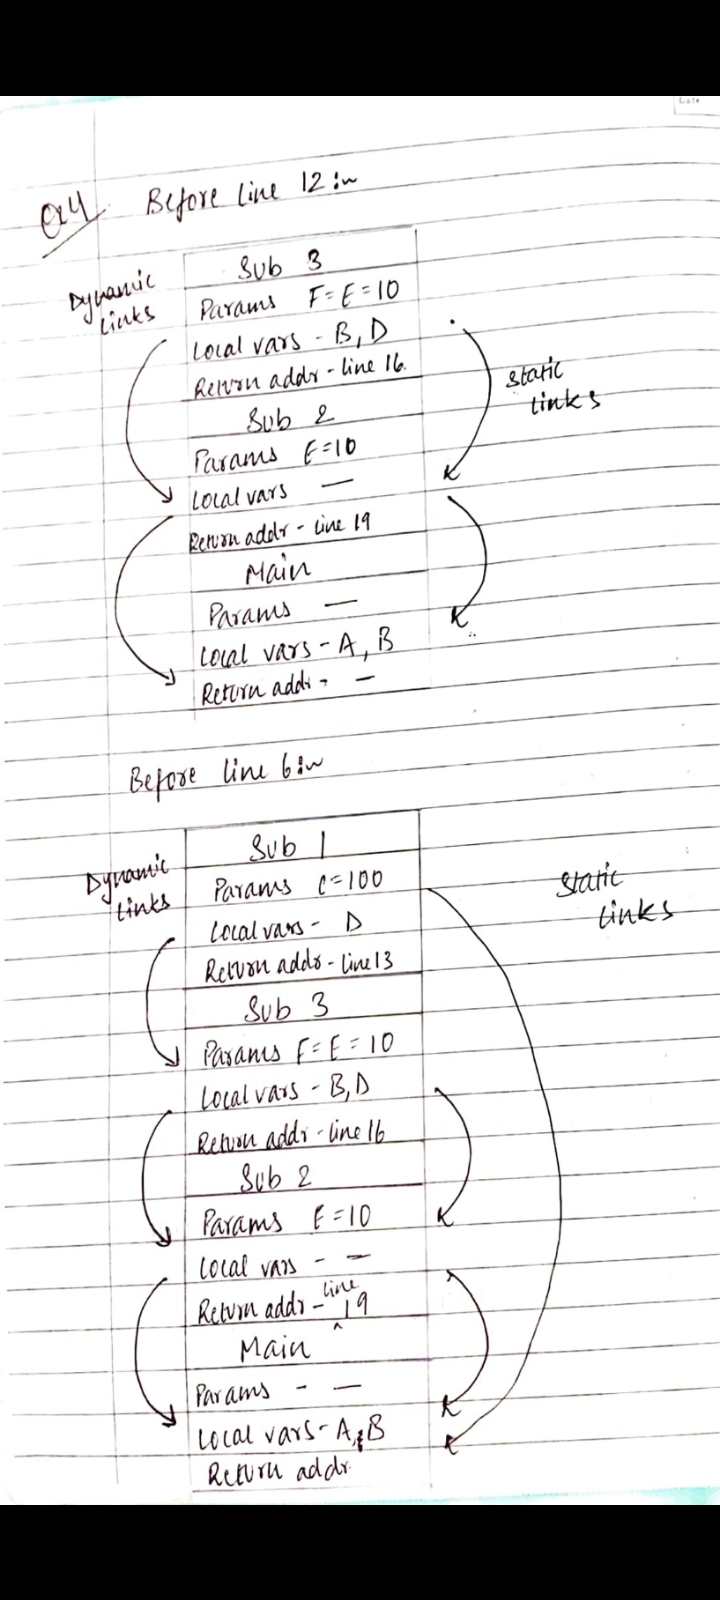 Date
Q4 Before line 12 :~
Dynamic
links
Sub 3
Params F = E = 10
Local vars - B, D
Return addr - line 16.
Static
links
Sub 2
Params E = 10
Local vars —
Return addr - line 19
Main
Params —
Local vars - A, B
Return addr - —
Before line 6 :~
Dynamic
links
Static
links
Sub 1
Params C = 100
Local vars - D
Return addr - line 13
Sub 3
Params F = E = 10
Local vars - B, D
Return addr - line 16
Sub 2
Params E = 10
Local vars - —
Return addr - line 19
Main
Params - —
Local vars - A, B
Return addr.